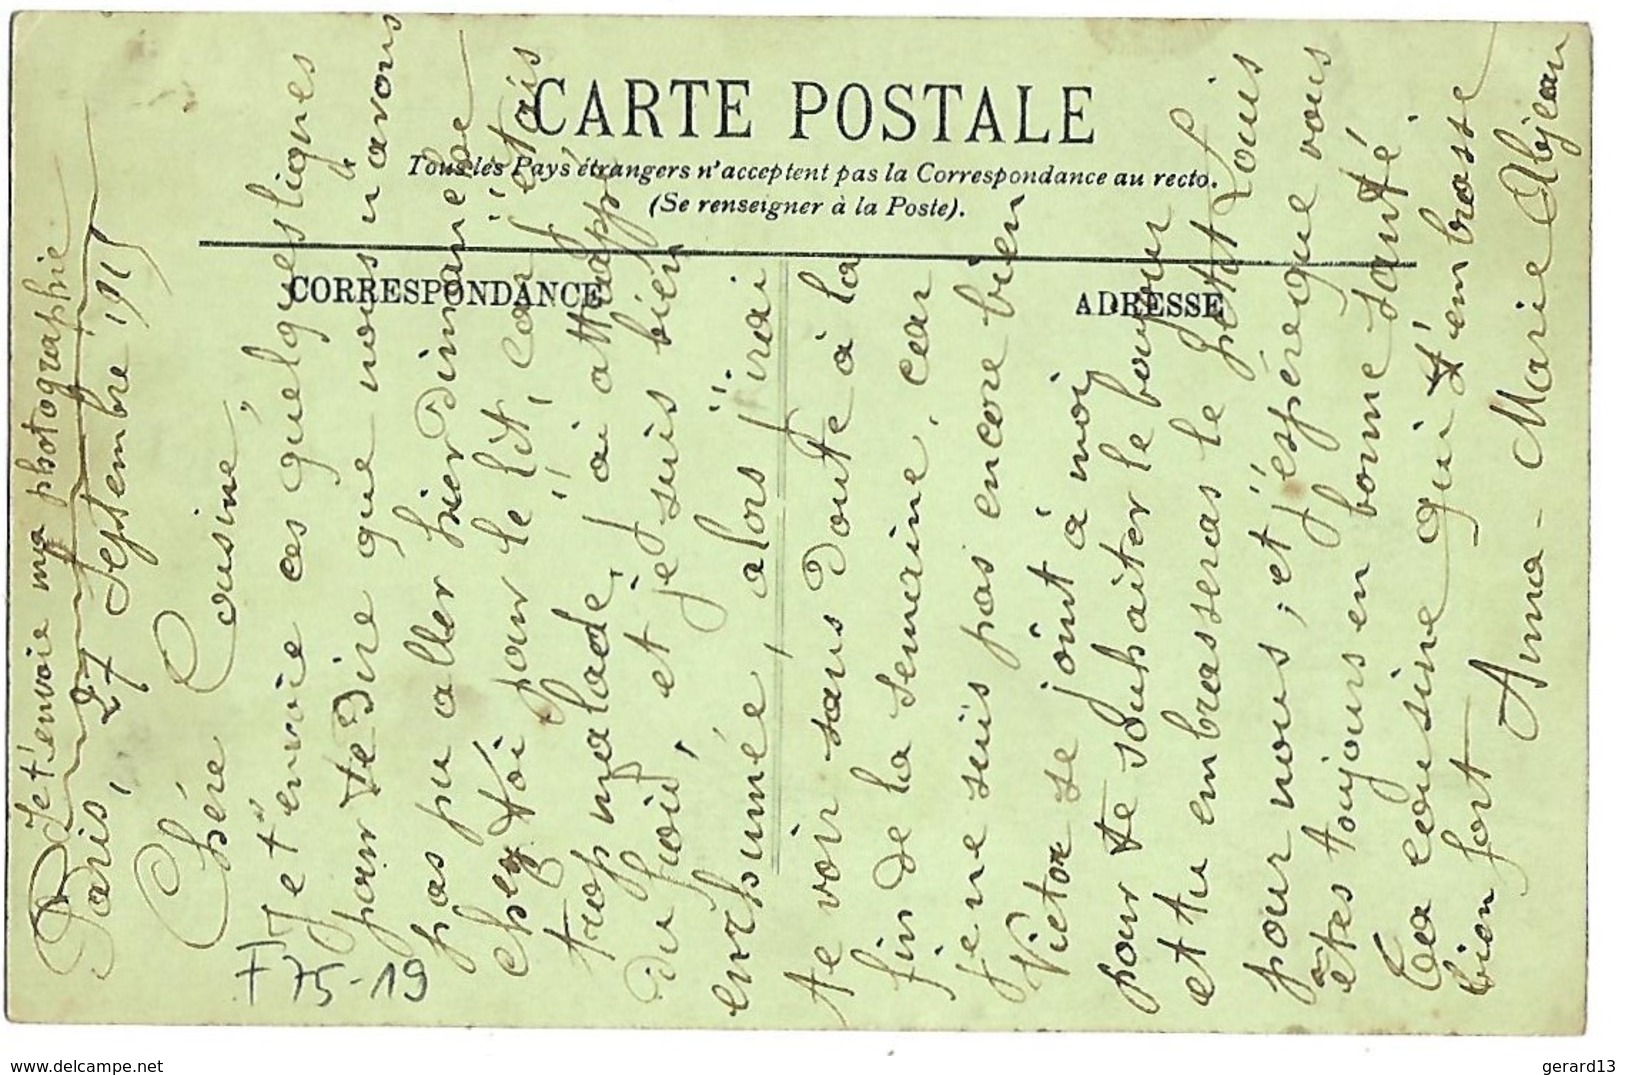 CARTE POSTALE
Tous les Pays étrangers n'acceptent pas la Correspondance au recto.
(Se renseigner à la Poste).
CORRESPONDANCE
ADRESSE
Je t'envoie ma photographie
Paris, 27 Septembre 1915
Chère Cousine,
Je t'envoie ces quelques lignes
pour te dire que nous n'avons
pas pu aller hier Dimanche
chez toi pour le lit, car j'étais
trop malade, j'ai attrappé
du froid, et je suis bien
enrhumée, alors j'irai
te voir sans doute à la
fin de la semaine, car
je ne suis pas encore bien
Victor se joint à moi
pour te souhaiter le bonjour
et tu embrasseras le petit Louis
pour nous, et j'espère que vous
êtes toujours en bonne santé
Ta cousine qui t'embrasse
bien fort
Anna-Marie Abjean
+ 75-19
www.delcampe.net
gerard13